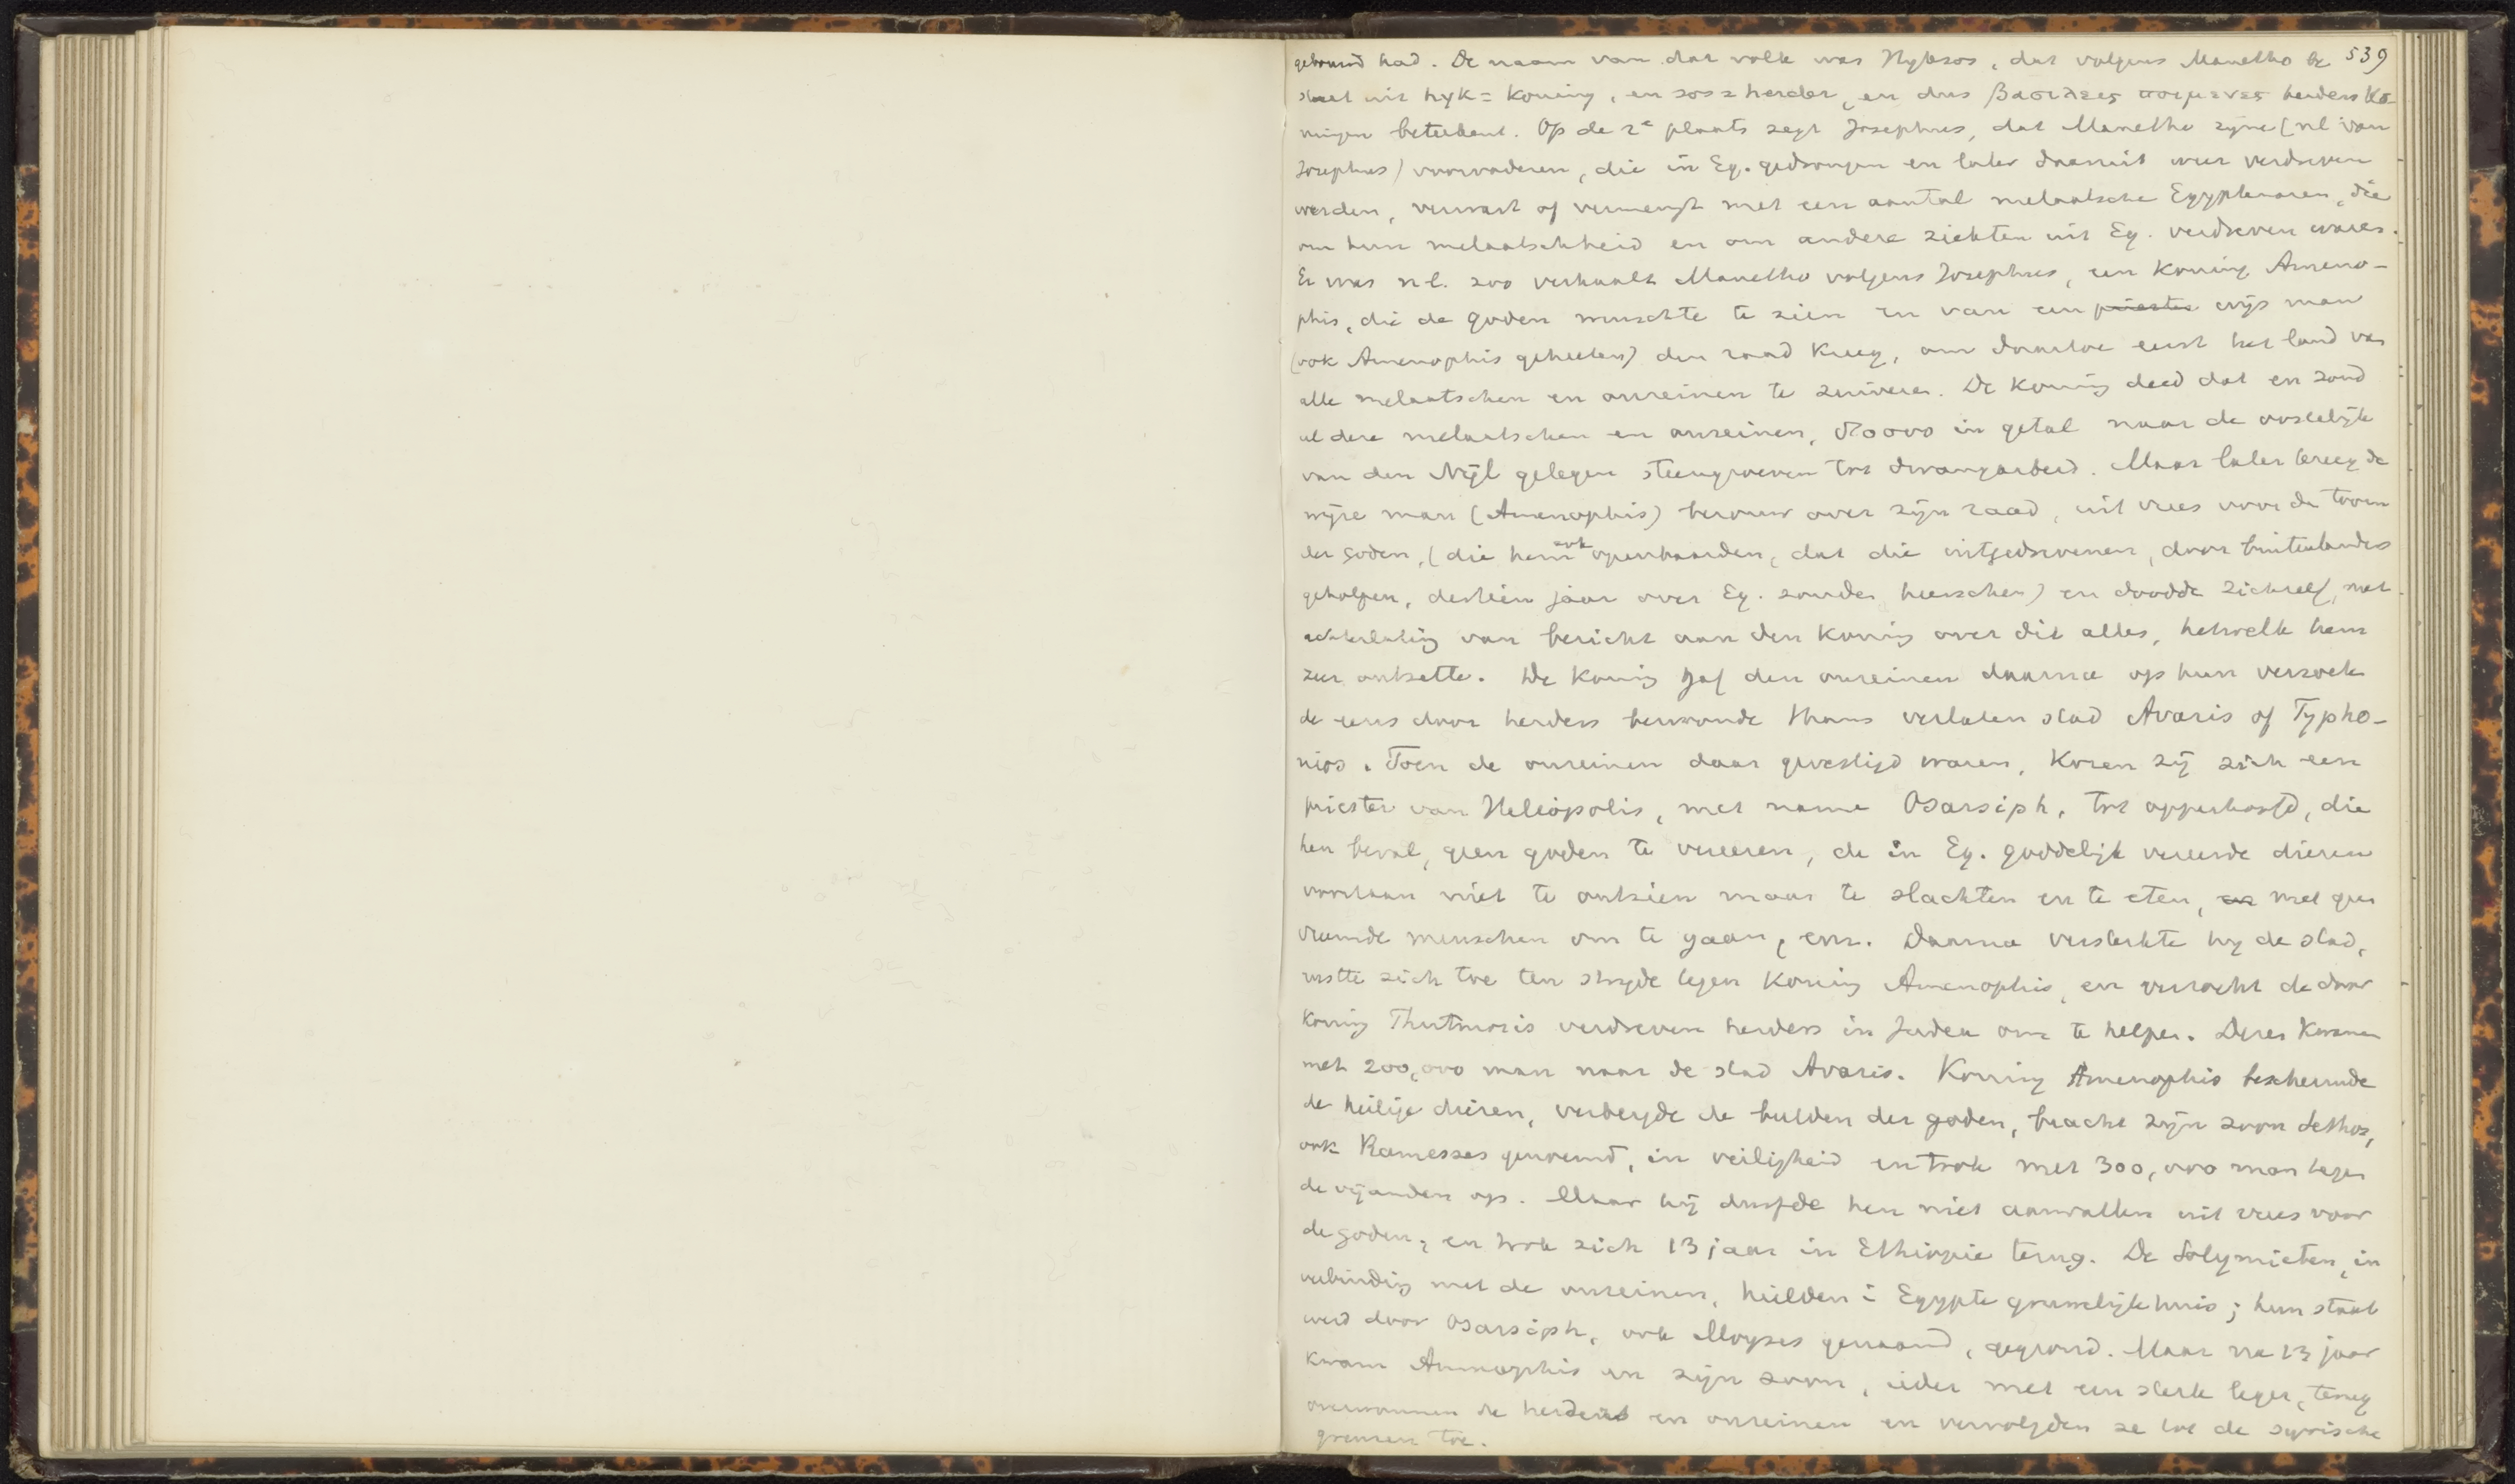 gebouwd had. De naam van dat volk was Hyksos, dat volgens Manetho be 539
staat uit hyk = koning, en sos = herder, en dus βασιλεες ποιμενες herders ko-
ningen beteekent. Op de 2e plaats zegt Josephus, dat Manetho zijne (nl van
Josephus) voorvaderen, die in Eg. gedrongen en later daaruit weer verdreven
werden, verwart of vermengt met een aantal melaatsche Egyptenaren, die
om hun melaatschheid en om andere ziekten uit Eg. verdreven waren.
Er was nl. zoo verhaalt Manetho volgens Josephus, een koning Ameno-
phis, die de goden wenschte te zien en van een priester wijs man
(ook Amenophis geheeten) den raad kreeg, om daartoe eerst het land van
alle melaatschen en onreinen te zuiveren. De koning deed dat en zond
al deze melaatschen en onreinen, 80000 in getal naar de oostelijk
van den Nijl gelegen steengroeven tot dwangarbeid. Maar later kreeg de
wijze man (Amenophis) berouw over zijn raad, uit vrees voor de toorn
der goden, (die hem ook openbaarden, dat die uitgedrevenen, door buitenlanders
geholpen, dertien jaar over Eg. zouden heerschen) en doodde zichzelf, met
achterlating van bericht aan den koning over dit alles, hetwelk hem
zeer ontzette. De koning gaf den onreinen daarna op hun verzoek
de eens door herders bewoonde thans verlaten stad Avaris of Typho-
nios. Toen de onreinen daar gevestigd waren, kozen zij zich een
priester van Heliopolis, met name Osarsiph, tot opperhoofd, die
hen beval, geen goden te vereeren, de in Eg. goddelijk vereerde dieren
voortaan niet te ontzien maar te slachten en te eten, en met geen
vreemde menschen om te gaan, enz. Daarna versterkte hij de stad,
rustte zich toe ten strijde tegen koning Amenophis, en verzocht de door
koning Thutmosis verdreven herders in Judea om te helpen. Dezen kwamen
met 200,000 man naar de stad Avaris. Koning Amenophis beschermde
de heilige dieren, verbergde de beelden der goden, bracht zijn zoon Sethos,
ook Ramesses genoemd, in veiligheid en trok met 300,000 man tegen
de vijanden op. Maar hij durfde hen niet aanvallen uit vrees voor
de goden, en trok zich 13 jaar in Ethiopie terug. De Solymieten, in
verbinding met de onreinen, hielden in Egypte gruwelijk huis; hun staat
werd door Osarsiph, ook Moyses genaamd, gegrond. Maar na 13 jaar
kwam Amenophis en zijn zoon, ieder met een sterk leger, terug
overwonnen de herders en onreinen en vervolgden ze tot de syrische
grenzen toe.